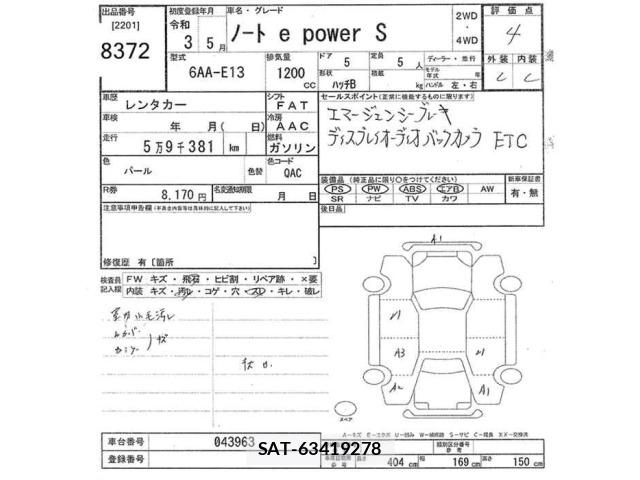 出品番号 初度登録年月 車名・グレード 2WD 評価点
[2201] 令和 ・
8372 3 5月 ノート e power S 4WD 4
型式 排気量 ドア 定員 ディーラー・並行 外装 内装
6AA-E13 1200 CC 5 5人 モデル年式 年 C C
形状 ハッチB 積載 kg ハンドル 左・右
車歴 レンタカー シフト FAT セールスポイント(正常に機能するものに限ります)
車検 年 月(日) 冷房 AAC エマージェンシーブレーキ
走行 5万9千381 km 燃料 ガソリン ディスプレイオーディオ バックカメラ ETC
色 パール 色替 色コード QAC
装備品 (純正品に限り○をつけてください) 新車保証書
R券 8,170円 名変通知期限 月 日 PS PW ABS エアB AW 有・無
SR ナビ TV カワ
注意事項申告欄(不具合内容等は具体的に記入して下さい) 後日品
修復歴 有〔箇所 〕
検査員記入欄 FW キズ・飛石・ヒビ割・リペア跡・×要
内装 キズ・汚レ・コゲ・穴・スレ・キレ・破レ
A1
A3
A2 A1
スペア
A-キズ E-エクボ U-凹み W-補修跡 S-サビ C-腐食 XX-交換済
車台番号 043963
SAT-63419278
登録番号 長さ 404 cm 幅 169 cm 高さ 150 cm